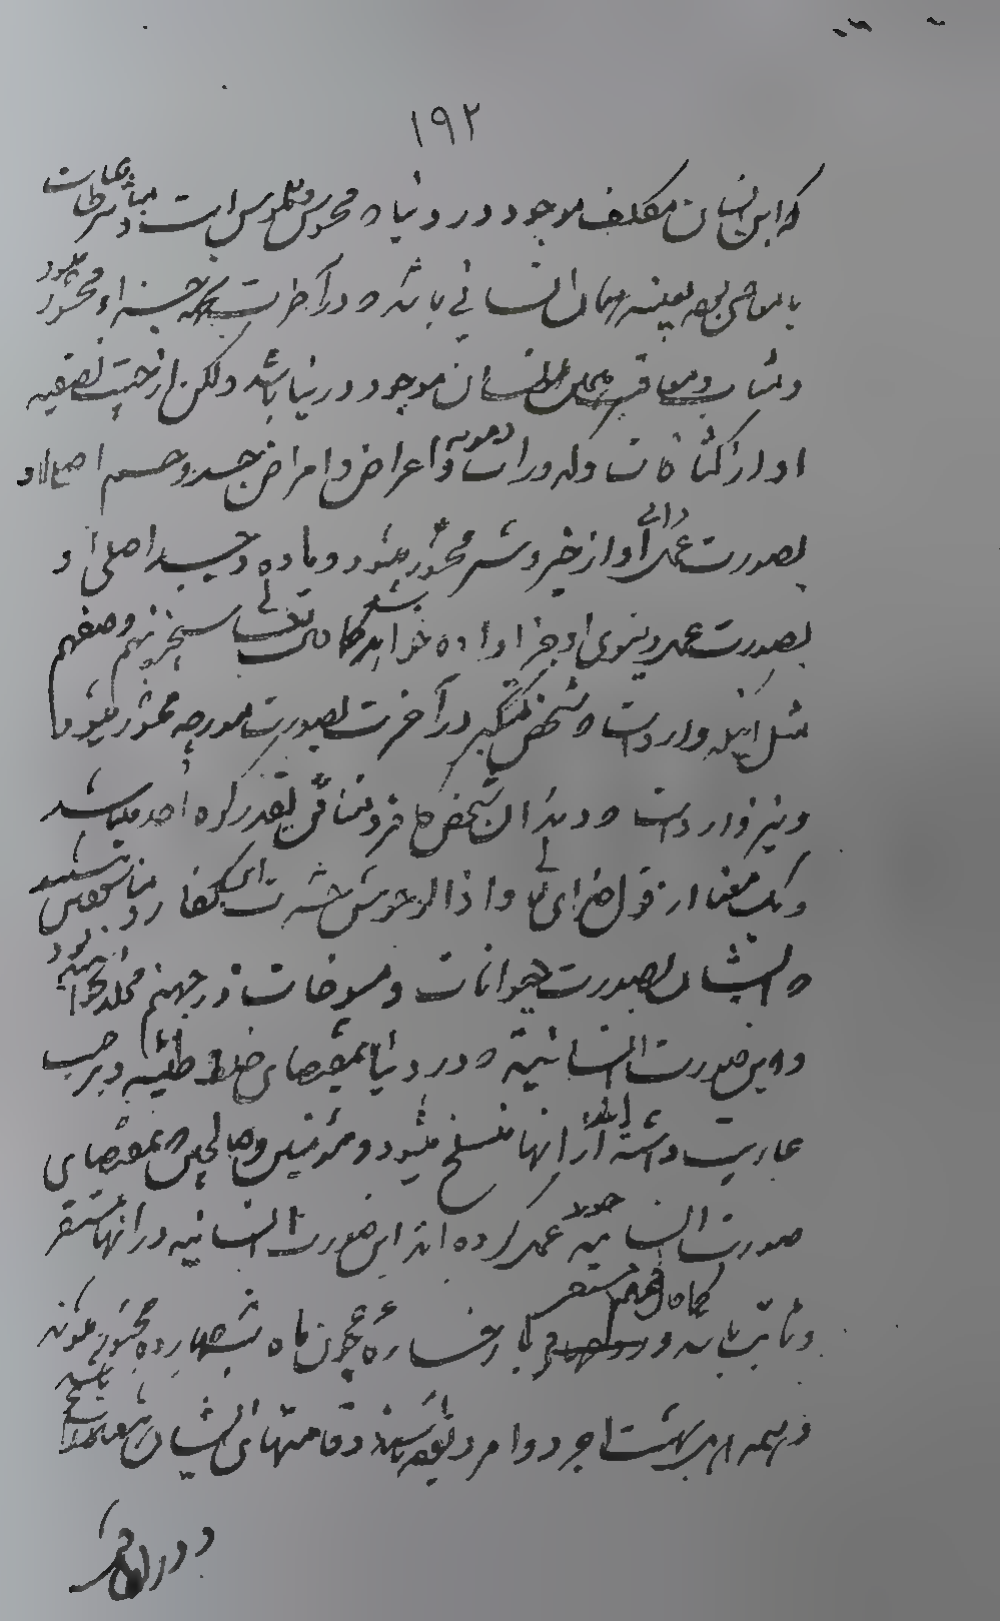 ١٩٢
که این انسان مکلف موجود در دنیا محسوس و ملموس است
بعینه همان انسانی باشد و در آخرت بجهة جزاء محشور
و مثاب و معاقب همان انسان موجود در دنیا باشد ولکن از حیثیت تصفیه
او از کثافات و کدورات و اعراض و امراض جسد و جسم اصلی او
بصورت عمل او از خیر و شر محشور میشود و ماده و جسد اصلی او
بصورت عمل دنیوی او جزا داده خواهد شد کما قال تعالی سیجزیهم وصفهم
مثل اینکه وارد است شخص متکبر در آخرت بصورت مورچه محشور میشود
و نیز وارد است دندان شخص کافر و منافق بقدر کوه احد میباشد
و یک معنا از قول خدای تعالی و اذا الوحوش حشرت این کفار و منافقین
ایشان بصورت حیوانات و مسوخات در جهنم مخلد
و این صورت انسانیة در دنیا بمقتضای خلط طینت و بر حسب
عاریت داشته اند از آنها منسلخ میشود و مؤمنین و صالحین بمقتضای
صورت انسانیه خود عمل کرده اند این صورت انسانیه در آنها مستقر
و ثابت باشد و با رخساره چون ماه شب چهارده محشور شوند
و همه اهل بهشت اجرد و امرد و قامتهای ایشان
و در